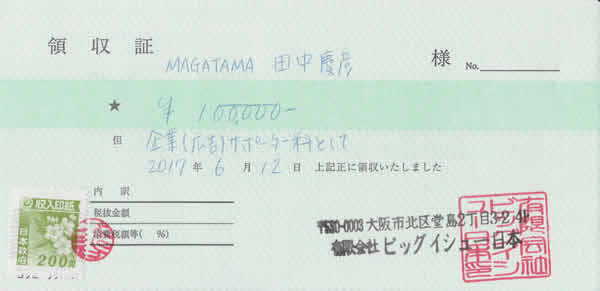 領収証
MAGATAMA 田中慶彦 様
No.
★ ¥ 100,000-
但 企業(広告)サポーター料として
2017年 6月 12日 上記正に領収いたしました
内訳
税抜金額
消費税額等( %)
収入印紙
日本政府
200円
〒530-0003 大阪市北区堂島2丁目3-2 4F
有限会社 ビッグイシュー日本